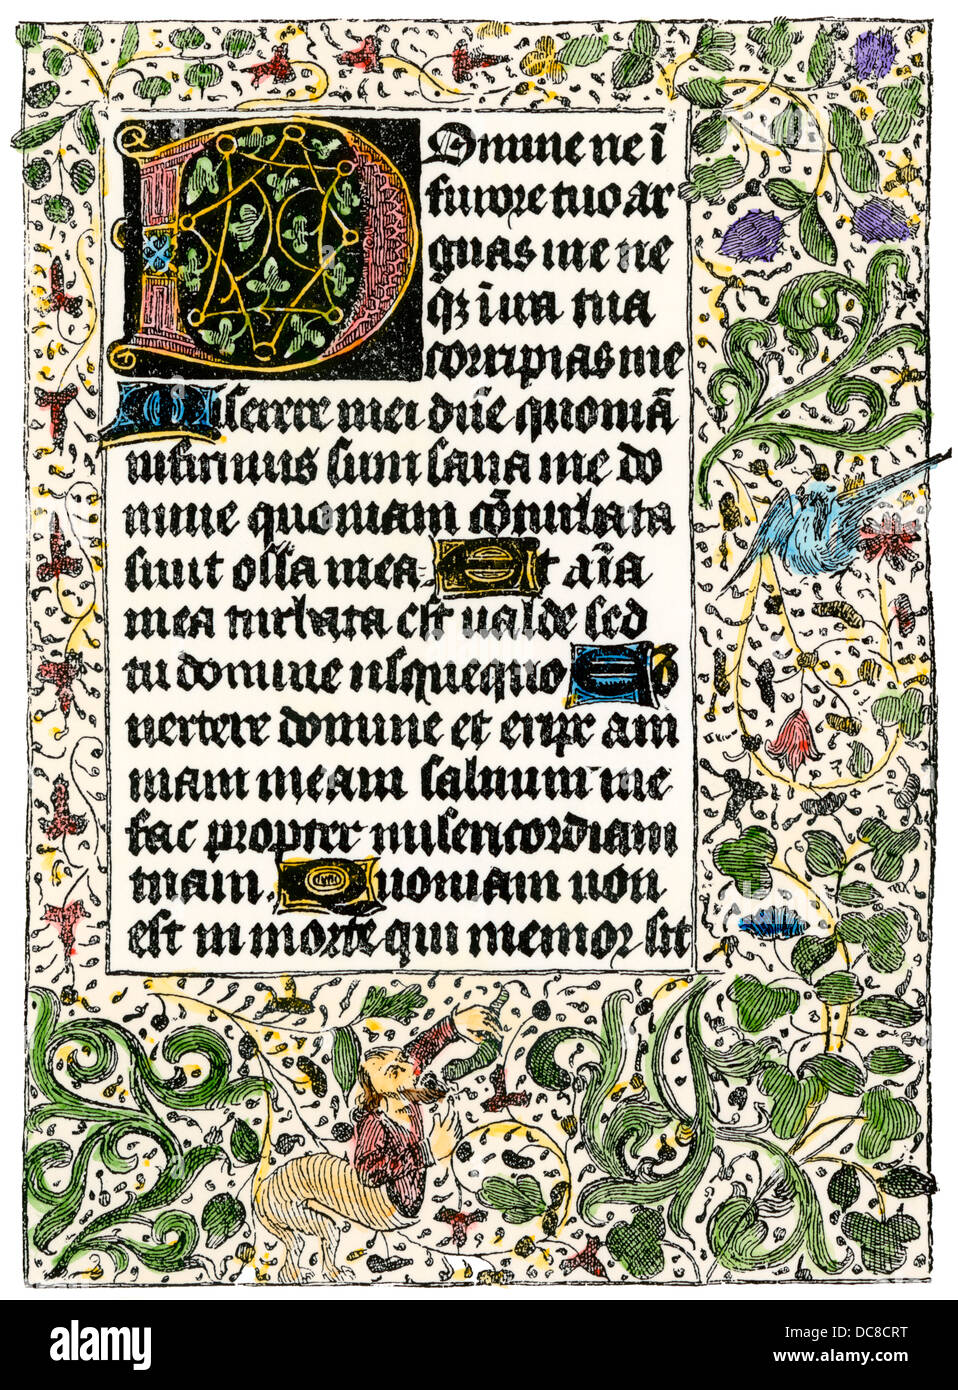 Domine ne ī
furore tuo ar
guas me ne
qꝫ ī ira tua
corripias me
Miserere mei dn̄e quoniā
infirmus sum sana me do
mine quoniam cōturbata
sunt ossa mea. Et aīa
mea turbata est valde sed
tu domine usquequo Co
vertere domine et eripe am
mam meam salvum me
fac propter misericordiam
tuam. Quoniam non
est in morte qui memor sit
alamy
DC8CRT
www.alamy.com